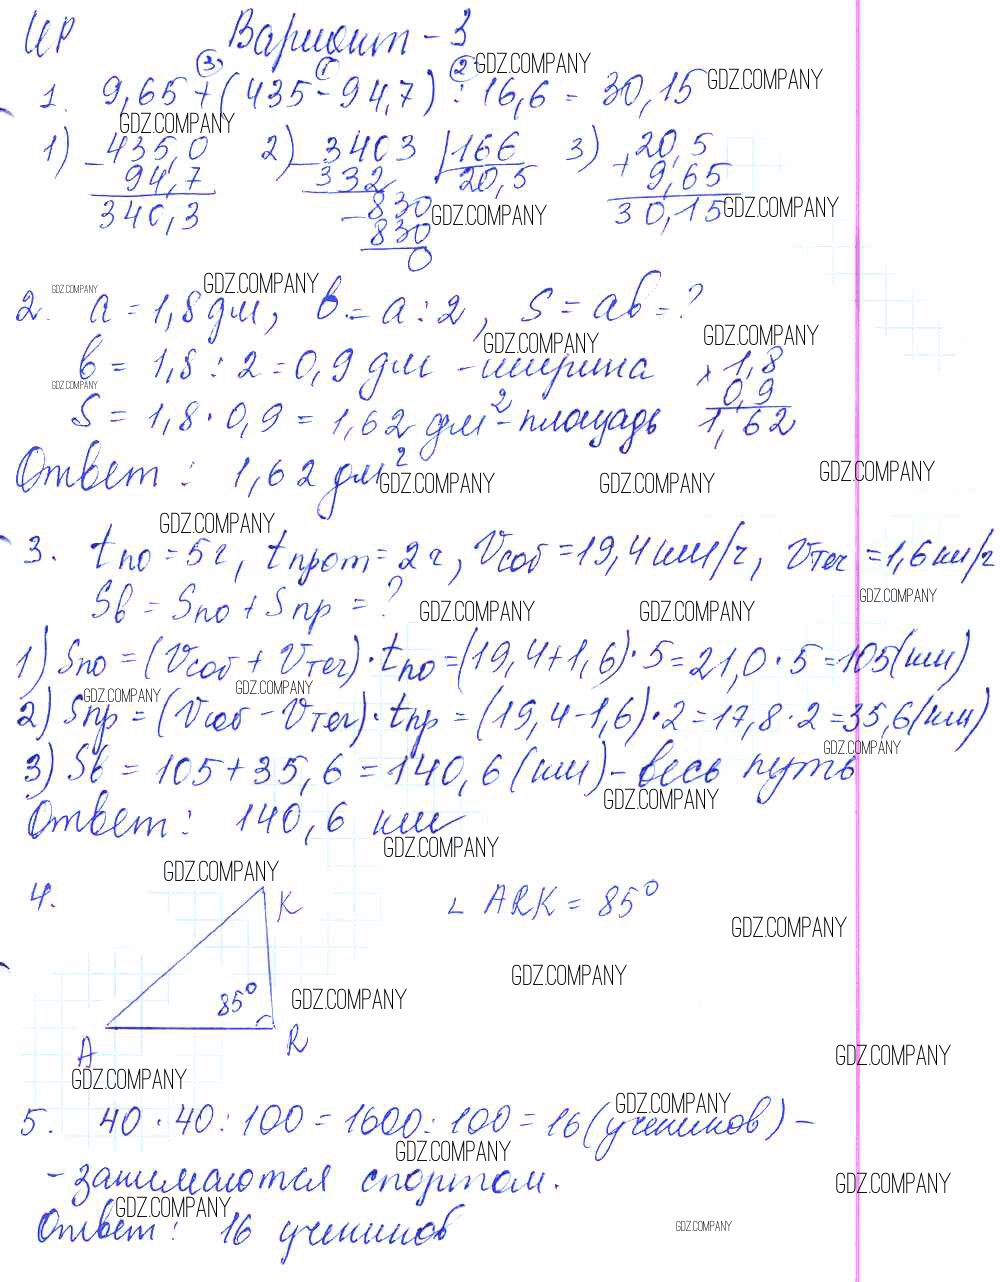 ИР Вариант - 3
1. 9,65 + (435 - 94,7) : 16,6 = 30,15
3 1 2
GDZ.COMPANY GDZ.COMPANY
GDZ.COMPANY
1) 435,0 2) 3403 | 166 3) 20,5
- 94,7 - 332 20,5 + 9,65
340,3 - 830 30,15
GDZ.COMPANY GDZ.COMPANY
830
0
GDZ.COMPANY GDZ.COMPANY
2. a = 1,8 дм, в = a : 2, S = aв = ?
GDZ.COMPANY GDZ.COMPANY
в = 1,8 : 2 = 0,9 дм - ширина × 1,8
GDZ.COMPANY 0,9
S = 1,8 · 0,9 = 1,62 дм² - площадь 1,62
Ответ : 1,62 дм²
GDZ.COMPANY GDZ.COMPANY GDZ.COMPANY
GDZ.COMPANY
3. tпо = 5 ч, tпрот = 2 ч, Vсоб = 19,4 км/ч, Vтеч = 1,6 км/ч
Sв = Sпо + Sпр = ?
GDZ.COMPANY GDZ.COMPANY GDZ.COMPANY
1) Sпо = (Vсоб + Vтеч) · tпо = (19,4 + 1,6) · 5 = 21,0 · 5 = 105 (км)
GDZ.COMPANY GDZ.COMPANY
2) Sпр = (Vсоб - Vтеч) · tпр = (19,4 - 1,6) · 2 = 17,8 · 2 = 35,6 (км)
GDZ.COMPANY
3) Sв = 105 + 35,6 = 140,6 (км) - весь путь
GDZ.COMPANY
Ответ : 140,6 км
GDZ.COMPANY
GDZ.COMPANY
4. K ∟ ARK = 85°
GDZ.COMPANY
GDZ.COMPANY
85° GDZ.COMPANY
A R
GDZ.COMPANY
GDZ.COMPANY
GDZ.COMPANY
5. 40 · 40 : 100 = 1600 : 100 = 16 (учеников) -
GDZ.COMPANY
- занимаются спортом.
GDZ.COMPANY
GDZ.COMPANY
Ответ : 16 учеников
GDZ.COMPANY